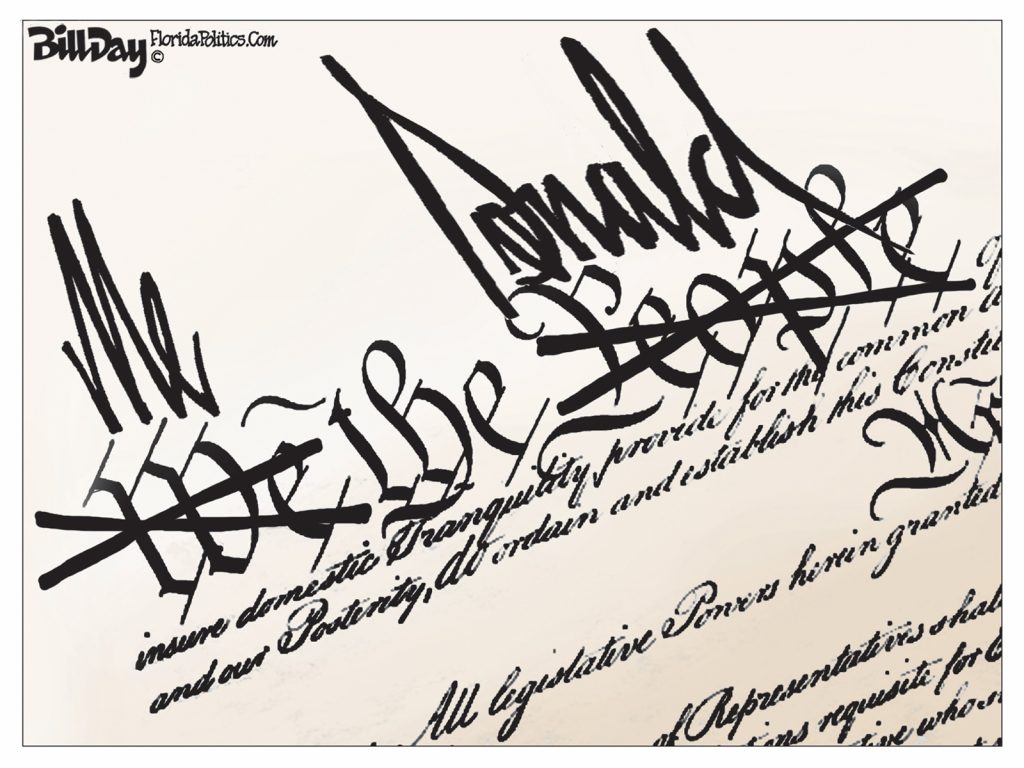 BillDay FloridaPolitics.Com
©
Me Donald
We the People
insure domestic Tranquility, provide for the common
and our Posterity, do ordain and establish this Constit
All legislative Powers herein granted
of Representatives shal
requisite for
who